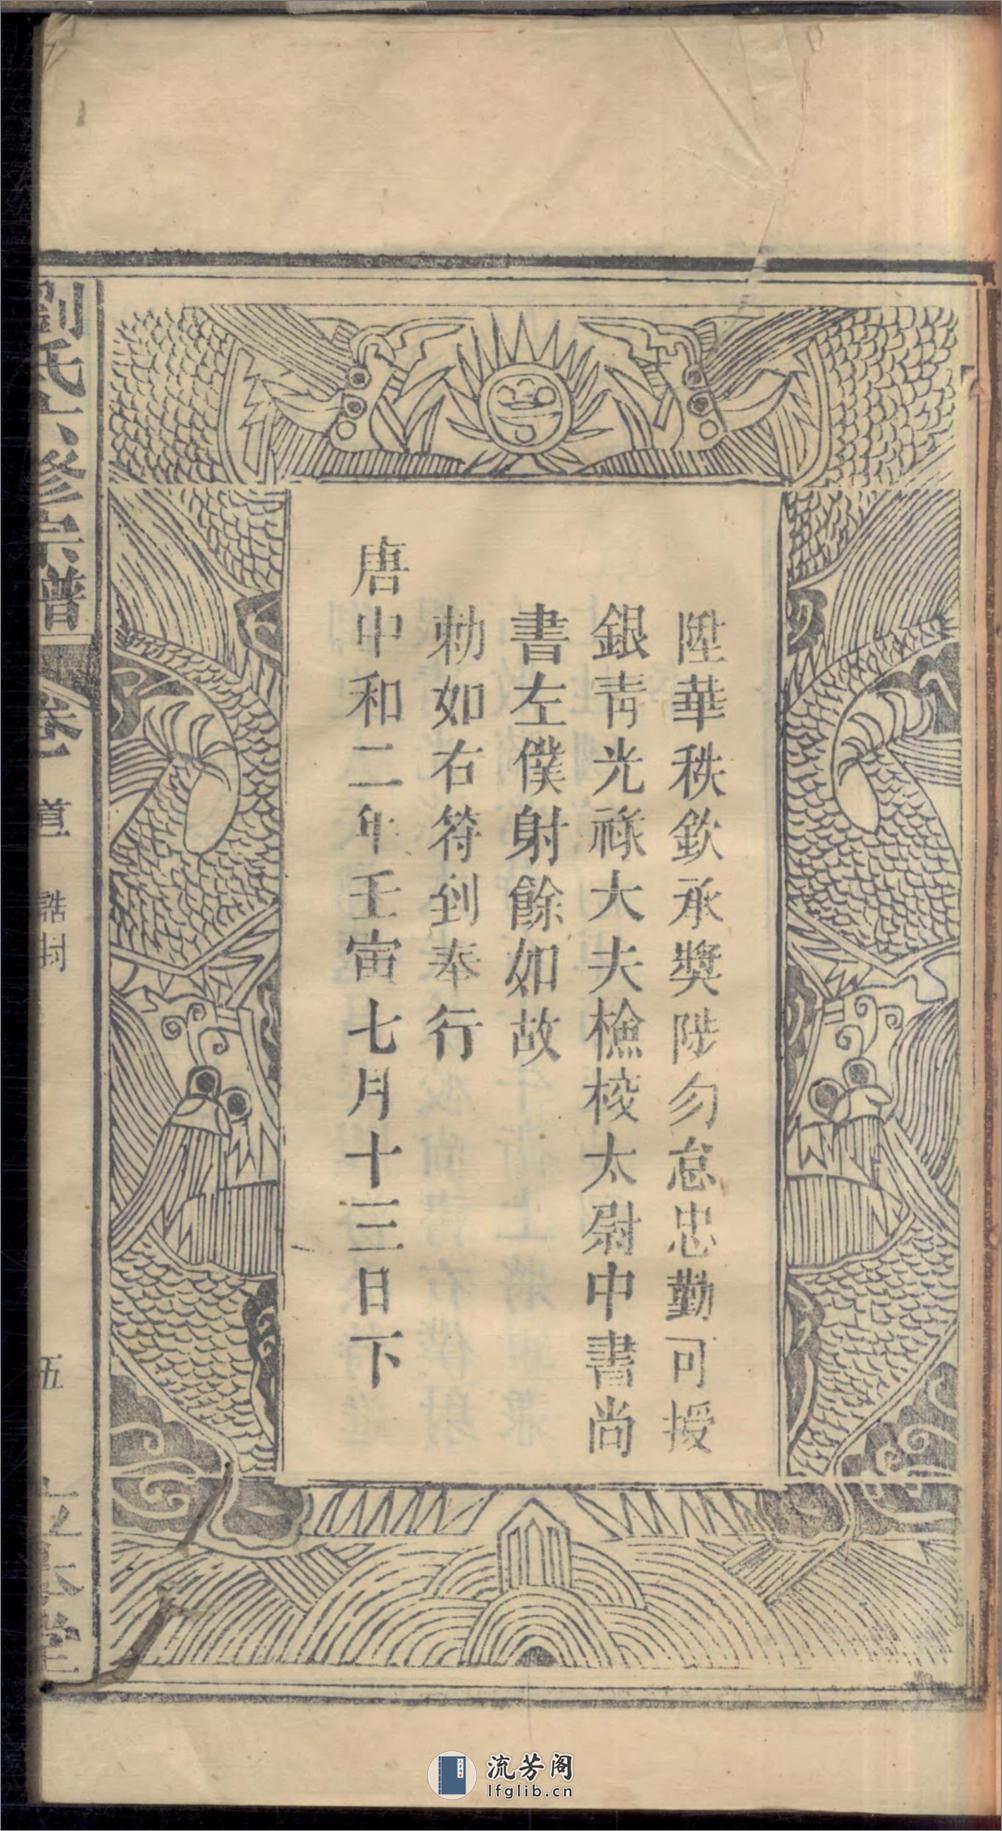 陞華秩欽承獎陟勿怠忠勤可授
銀青光祿大夫檢校太尉中書尚
書左僕射餘如故
勅如右符到奉行
唐中和二年壬寅七月十三日下
劉氏六修宗譜
卷一
道
誥封
五
流芳阁
lfglib.cn